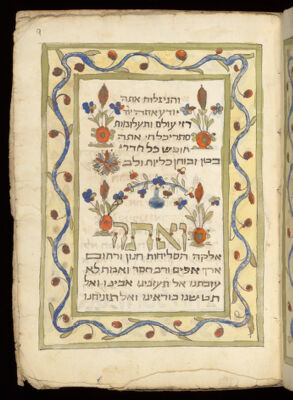 והניגלות אתה
יודע אתה יודע
רזי עולם ותעלומות
סתרי כל חי אתה
חופש כל חדרי
בטן ובוחן כליות ולב
ואתה
אלקה הסליחות חנון ורחום
ארך אפים ורב חסד ואמת לא
עזבתנו אל תעזבינו אבינו ואל
תטישנו בוראינו ואל תזניחנו